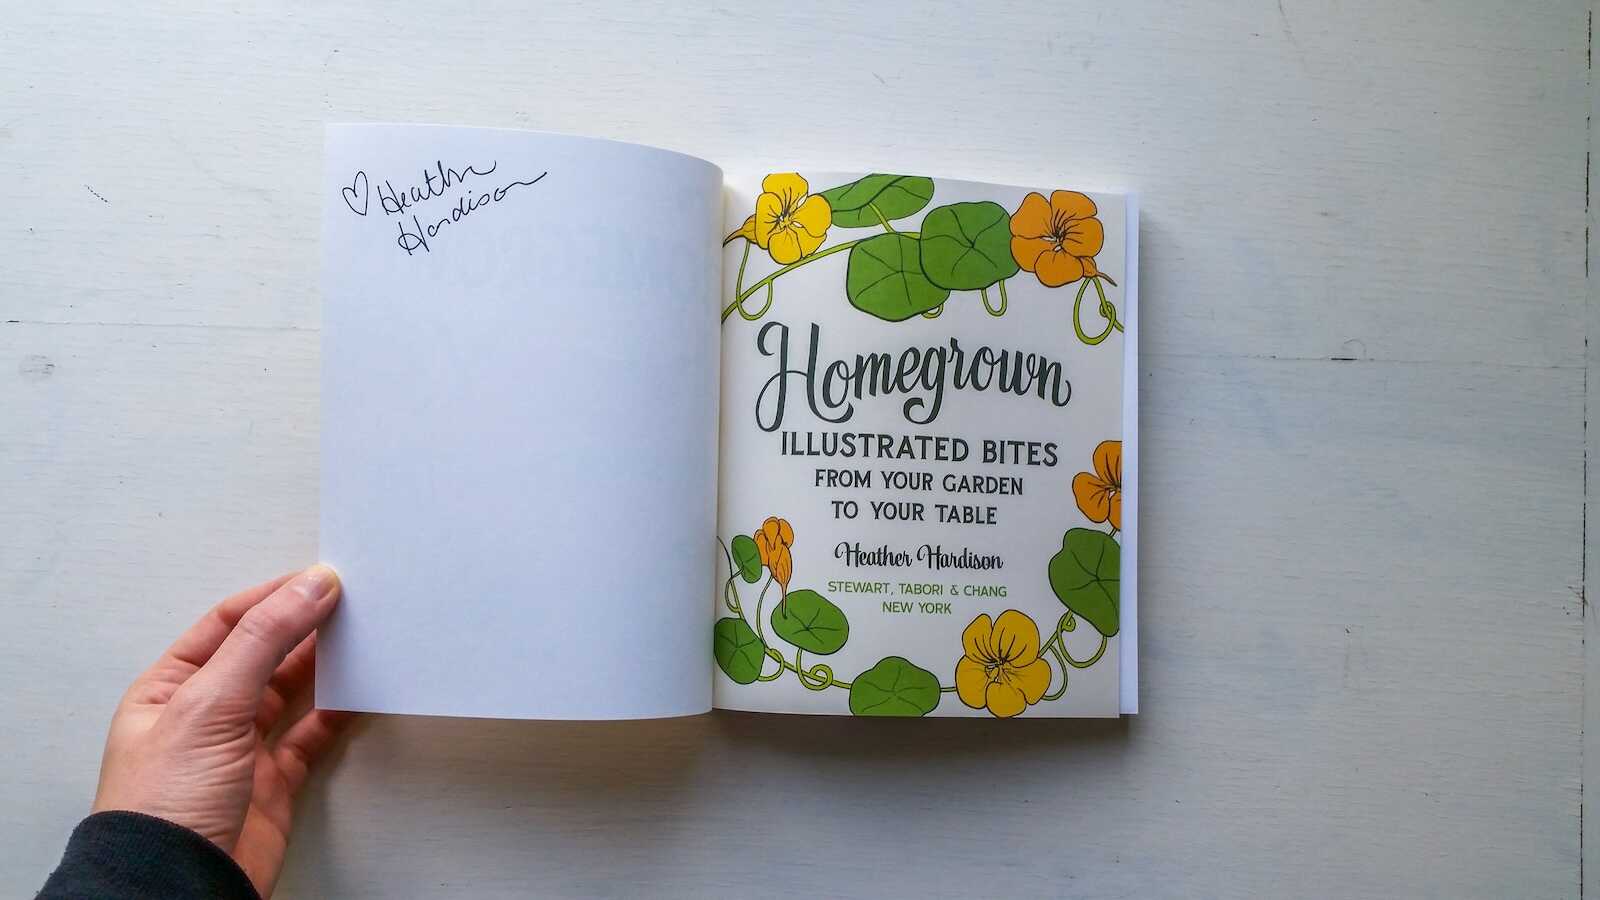 Heather
Hardison
Homegrown
ILLUSTRATED BITES
FROM YOUR GARDEN
TO YOUR TABLE
Heather Hardison
STEWART, TABORI & CHANG
NEW YORK